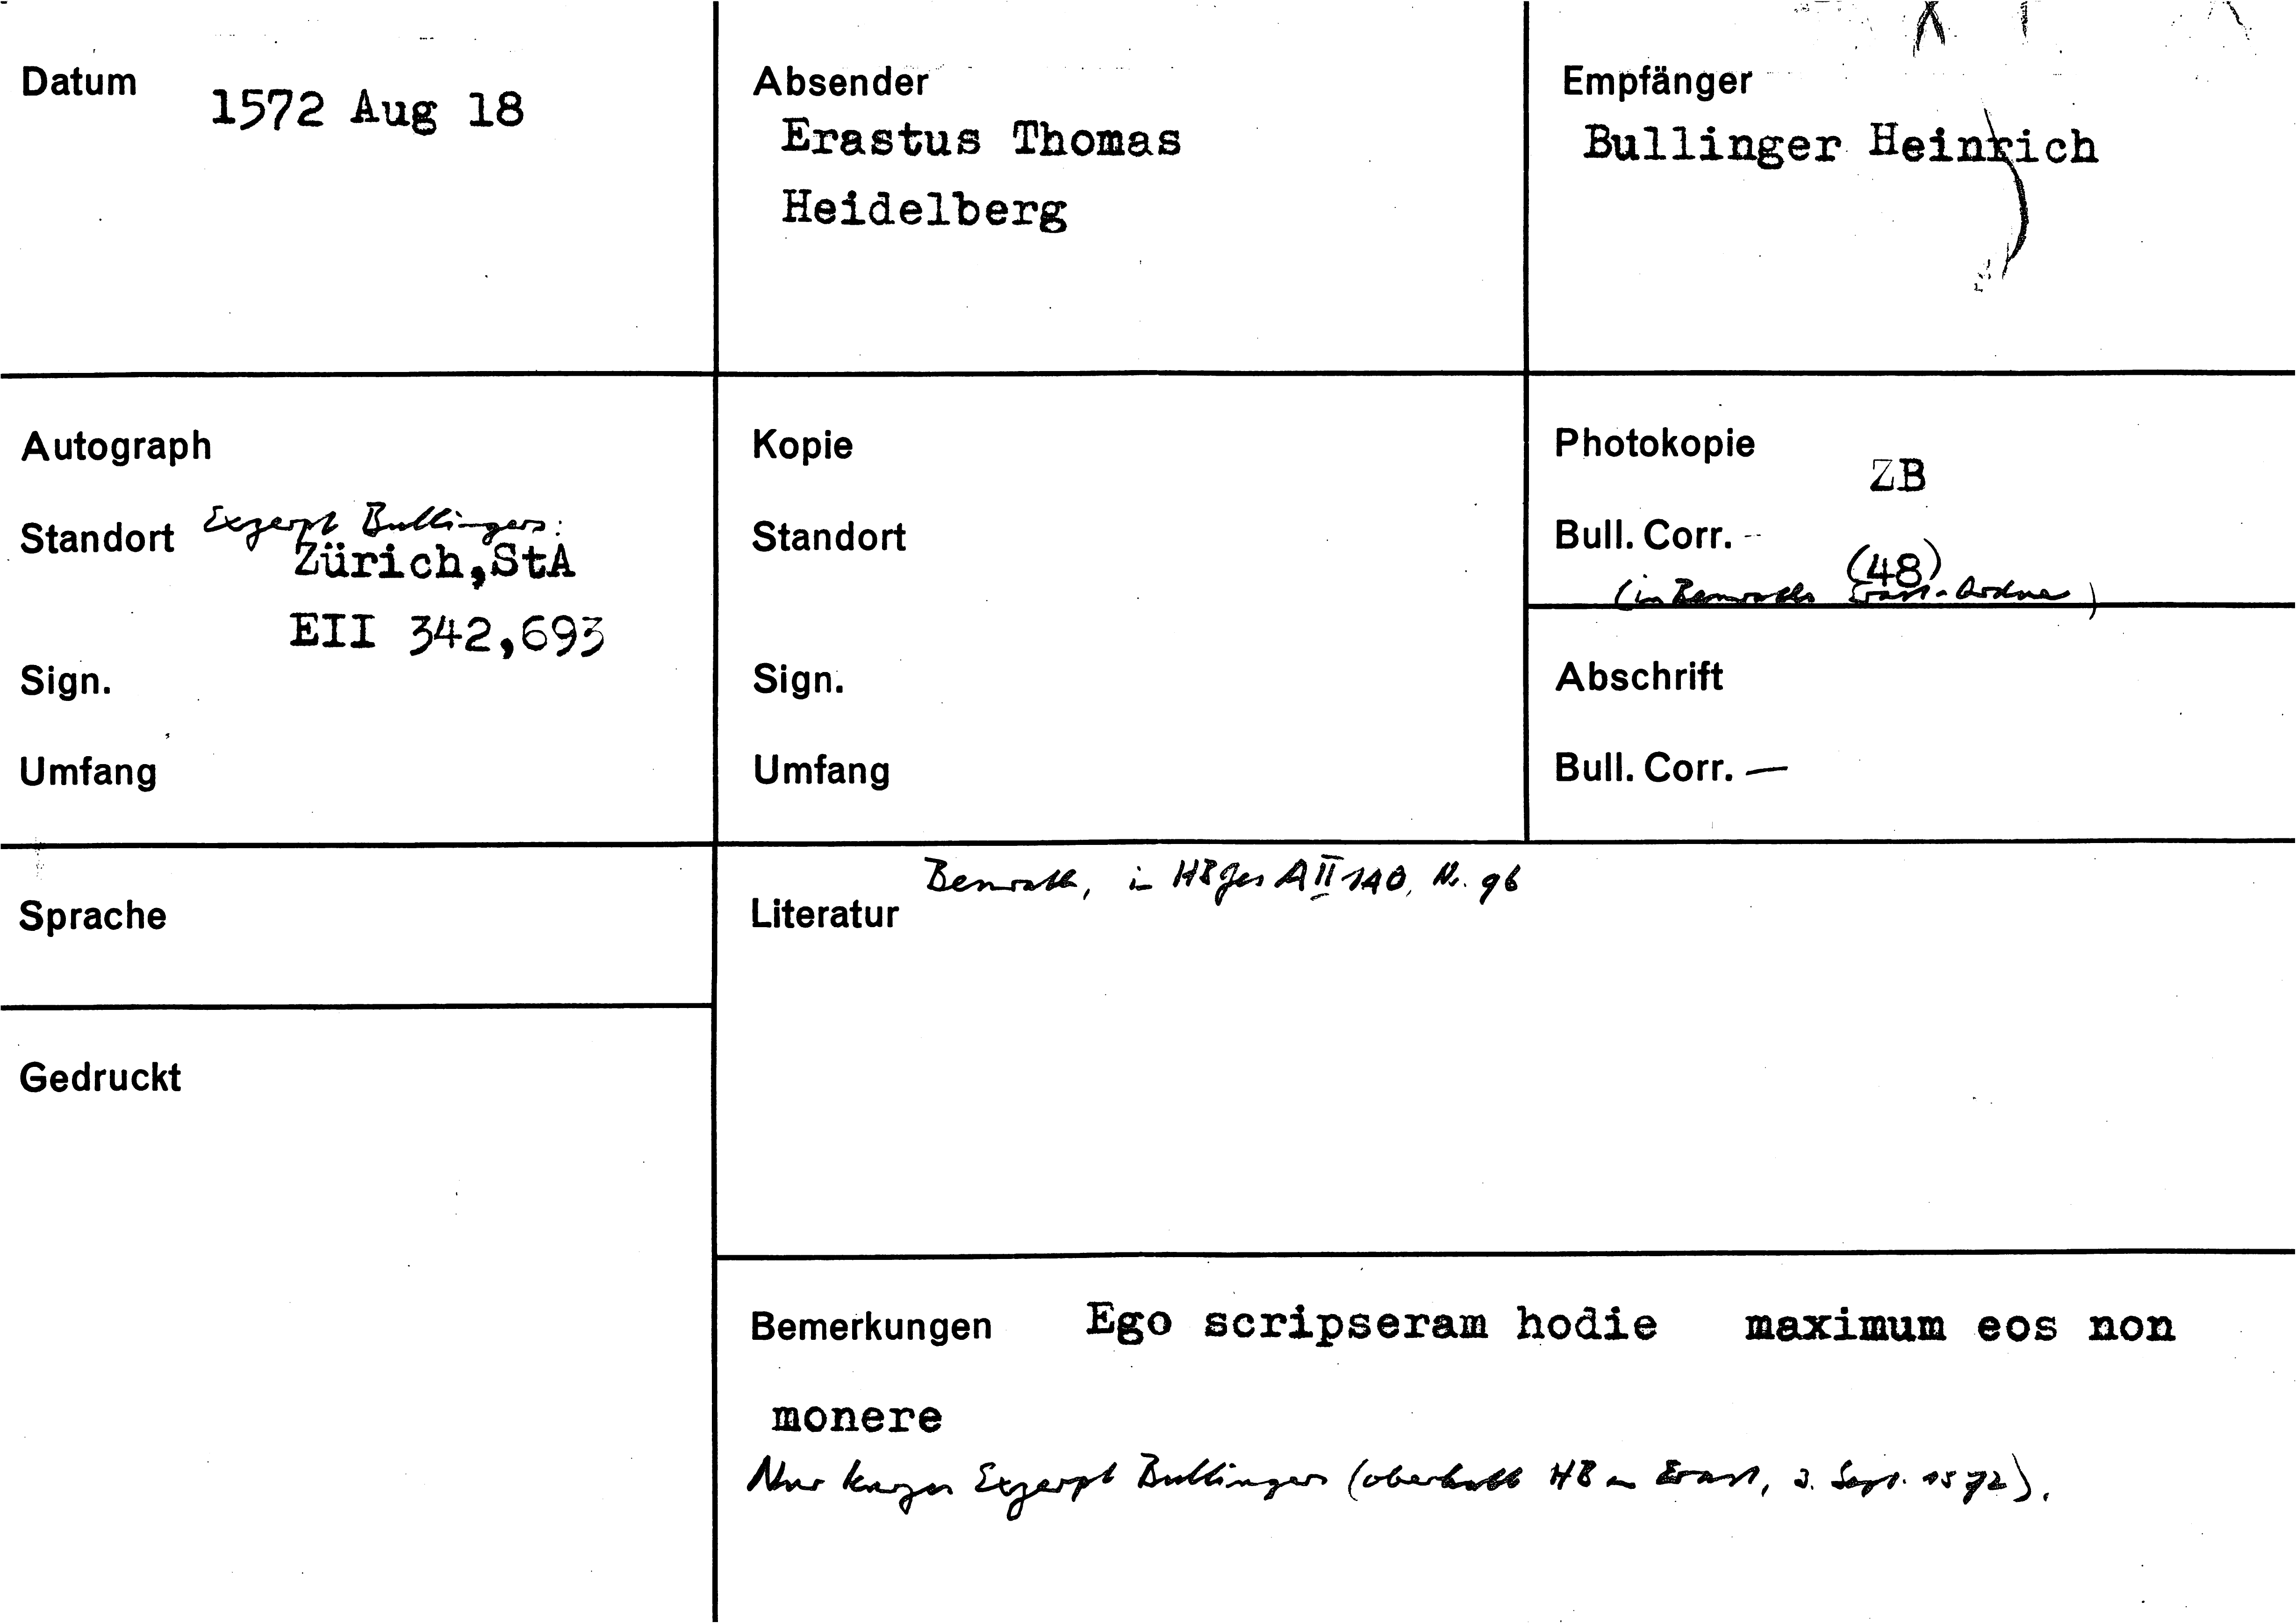 Datum
1572 Aug 18
Absender
Erastus Thomas
Heidelberg
Empfänger
Bullinger Heinrich
Autograph
Standort Exzerpt Bullingers:
Zürich,StA
EII 342,693
Sign.
Umfang
Kopie
Standort
Sign.
Umfang
Photokopie
ZB
Bull. Corr. -
(48)
(in Benraths Erast-Ordner)
Abschrift
Bull. Corr. —
Sprache
Gedruckt
Benrath, in HBGes A II 140, Nr. 96
Literatur
Bemerkungen Ego scripseram hodie maximum eos non
monere
Nur kurzes Exzerpt Bullingers (oberhalb HB an Erast, 3. Sept. 1572).